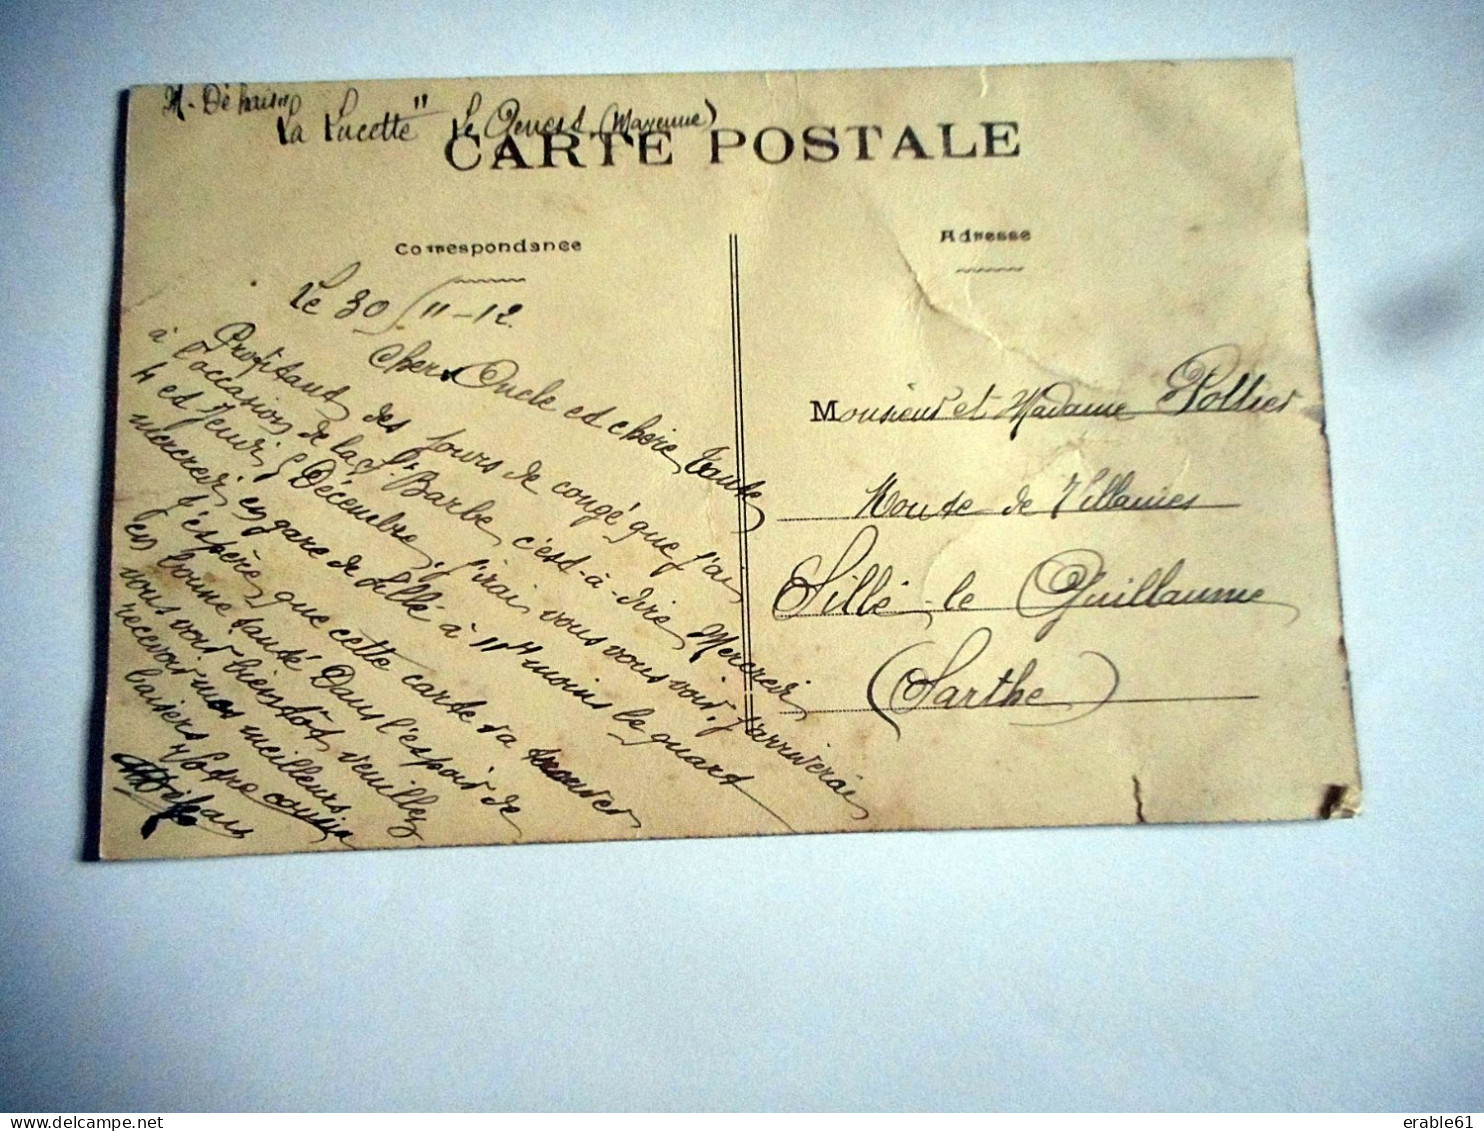 "La Lucette" Le Genest. (Mayenne)
CARTE POSTALE
Correspondance
Le 30/11-12.
Cher Oncle et chère Tante
Profitant des jours de congé que j'ai
à l'occasion de la Ste Barbe, c'est-à-dire Mercredi
4 et Jeudi 5 Décembre, j'irai vous voir, j'arriverai
mercredi en gare de Sillé à 11 H moins le quart
J'espère que cette carte va trouver
en bonne santé Dans l'espoir de
vous voir bientôt veuillez
recevoir mes meilleurs
baisers
Votre cousin
Adresse
Monsieur et Madame Pottier
Route de Villaines
Sillé-le Guillaume
(Sarthe)
erable61